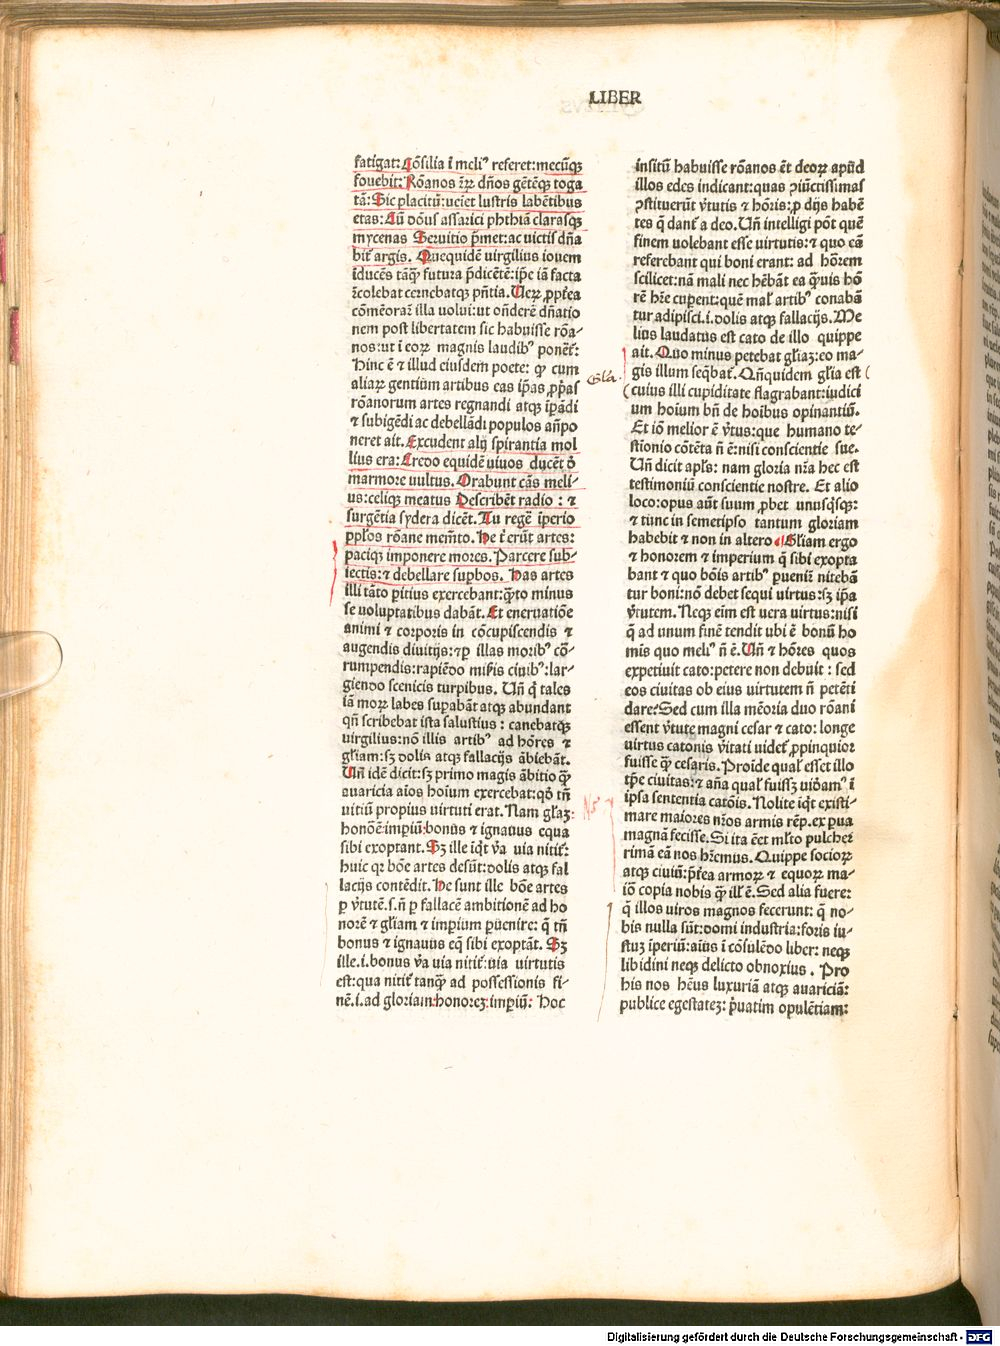 LIBER
fatigat: Cōsilia ī meliꝰ referet: mecūqꝫ
fouebit: Rōanos rēꝝ dn̄os gētēqꝫ toga
tā: Sic placitū: ueīet lustris labētibus
etas: Cū dōus assarici phthiā clarasqꝫ
mycenas Seruitio p̄met: ac uictis dn̄a
bit̄ argis. Quequidē uirgilius iouem
īducēs tāqꝫ futura p̄dicētē: ip̄e iā facta
rēcolebat cernebatqꝫ pn̄tia. Ueꝝ ꝓpt̄ea
cōmēorar̄ illa uolui: ut on̄derē dn̄atio
nem post libertatem sic habuisse rōa⸗
nos: ut ī eoꝝ magnis laudibꝰ ponēt̄:
Hinc ē ⁊ illud eiusdem poete: ꝙ cum
aliaꝝ gentium artibus eas ip̄as ꝓp̄as
rōanorum artes regnandi atqꝫ īpādi
⁊ subigēdi ac debellādi populos an̄po
neret ait. Excudent alij spirantia mol
lius era: Credo equidē uiuos ducēt ō
marmore uultus. Orabunt cās meli⸗
us: celiqꝫ meatus Describēt radio: ⁊
surgētia sydera dicēt. Tu regē īperio
pp̄los rōane mem̄to. He t̄ erūt artes:
paciqꝫ imponere mores. Parcere sub⸗
iectis: ⁊ debellare supbos. Has artes
illi tāto ꝑitius exercebant: q̄to minus
se uoluptatibus dabāt. Et eneruatiōe
animi ⁊ corporis in cōcupiscendis ⁊
augendis diuitijs: ⁊ꝑ illas moribꝰ cō⸗
rumpendis: rapiēdo mis̄is ciuibꝰ: lar⸗
giendo scenicis turpibus. Un̄ q̄ tales
iā moꝝ labes supabāt atqꝫ abundant
qn̄ scribebat ista salustius: canebatqꝫ
uirgilius: nō illis artibꝰ ad hōres ⁊
gl̄iam: sꝫ dolis atqꝫ fallacijs ābiebāt.
Un̄ idē dicit: sꝫ primo magis ābitio q̄ꝫ
auaricia aīos hoium exercebat: qō tn̄
uitiū propius uirtuti erat. Nam gl̄aꝫ:
honōē: imꝑiū: bonus ⁊ ignauus equa
sibi exoptant. Sꝫ ille iq̄t ūa uia nitit̄:
huic qꝛ bōe artes desūt: dolis atqꝫ fal
lacijs contēdit. He sunt ille bōe artes
ꝑ v̄tutē. s. n̄ ꝑ fallacē ambitionē ad ho
norē ⁊ gl̄iam ⁊ imꝑium ꝑuenire: q̄ tn̄
bonus ⁊ ignauus eq̄ sibi exoptāt. Sꝫ
ille. i. bonus ūa uia nitit̄: uia uirtutis
est: qua nitit̄ tanq̄ꝫ ad possessionis fi⸗
nē. i. ad gloriam: honoreꝫ: imꝑiū: Hoc
insitū habuisse rōanos ēt deoꝝ apud
illos edes indicant: quas ꝯiūctissimas
ꝯstituerūt v̄tutis ⁊ hōris: ꝓ dijs habē
tes q̄ dant̄ a deo. Un̄ intelligi pōt quē
finem uolebant esse uirtutis: ⁊ quo eā
referebant qui boni erant: ad hōrem
scilicet: nā mali nec hēbāt ea q̄uis hō
rē hr̄e cuꝑent: quē mal̄ artibꝰ conabā
tur adipisci. i. dolis atqꝫ fallacijs. Me
lius laudatus est cato de illo quippe
ait. Quo minus petebat gl̄iaꝫ: eo ma⸗
gis illum seq̄bat̄. Qn̄quidem gl̄ia est
cuius illi cupiditate flagrabant: iudici
um hoium bn̄ de hoibus opinantiū.
Et iō melior ē v̄tus: que humano te⸗
stionio cōtēta n̄ ē: nisi conscientie sue.
Un̄ dicit apl̄s: nam gloria nr̄a hec est
testimoniū conscientie nostre. Et alio
loco: opus aūt suum ꝓbet unusq̄sqꝫ:
⁊ tūnc in semetipso tantum gloriam
habebit ⁊ non in altero Gl̄iam ergo
⁊ honorem ⁊ imperium q̄ sibi exopta
bant ⁊ quo bōis artibꝰ ꝑueniī nitebā
tur boni: nō debet sequi uirtus: sꝫ ip̄a
v̄tutem. Neqꝫ eīm est uera uirtus: nisi
q̄ ad unum finē tendit ubi ē bonū ho
mis quo meliꝰ n̄ ē. Un̄ ⁊ hōres quos
expetiuit cato: petere non debuit: sed
eos ciuitas ob eius uirtutem n̄ petēti
dare: Sed cum illa mēoria duo rōani
essent v̄tute magni cesar ⁊ cato: longe
uirtus catonis v̄itati uidet̄ ꝓpinquior
fuisse q̄ꝫ cesaris. Proīde qual̄ esset illo
tp̄e ciuitas: ⁊ an̄a qual̄ fuissꝫ uidamꝰ ī
ipsa sententia catōis. Nolite iq̄t existi⸗
mare maiores nr̄os armis rēp. ex ꝑua
magnā fecisse. Si ita ēet ml̄to pulcher
rimā eā nos hr̄emus. Quippe socioꝝ
atqꝫ ciuiū: p̄t̄ea armoꝝ ⁊ equoꝝ ma⸗
iō copia nobis q̄ꝫ ill̄ ē. Sed alia fuere:
q̄ illos uiros magnos fecerunt: q̄ no⸗
bis nulla sūt: domi industria: foris iu⸗
stuꝫ īperiū: aīus ī cōsulēdo liber: neqꝫ
libidini neqꝫ delicto obnoxius. Pro
his nos hēus luxuriā atqꝫ auariciā:
publice egestateꝫ: p̄uatim opulētiam:
Gl̄a.
Digitalisierung gefördert durch die Deutsche Forschungsgemeinschaft - DFG